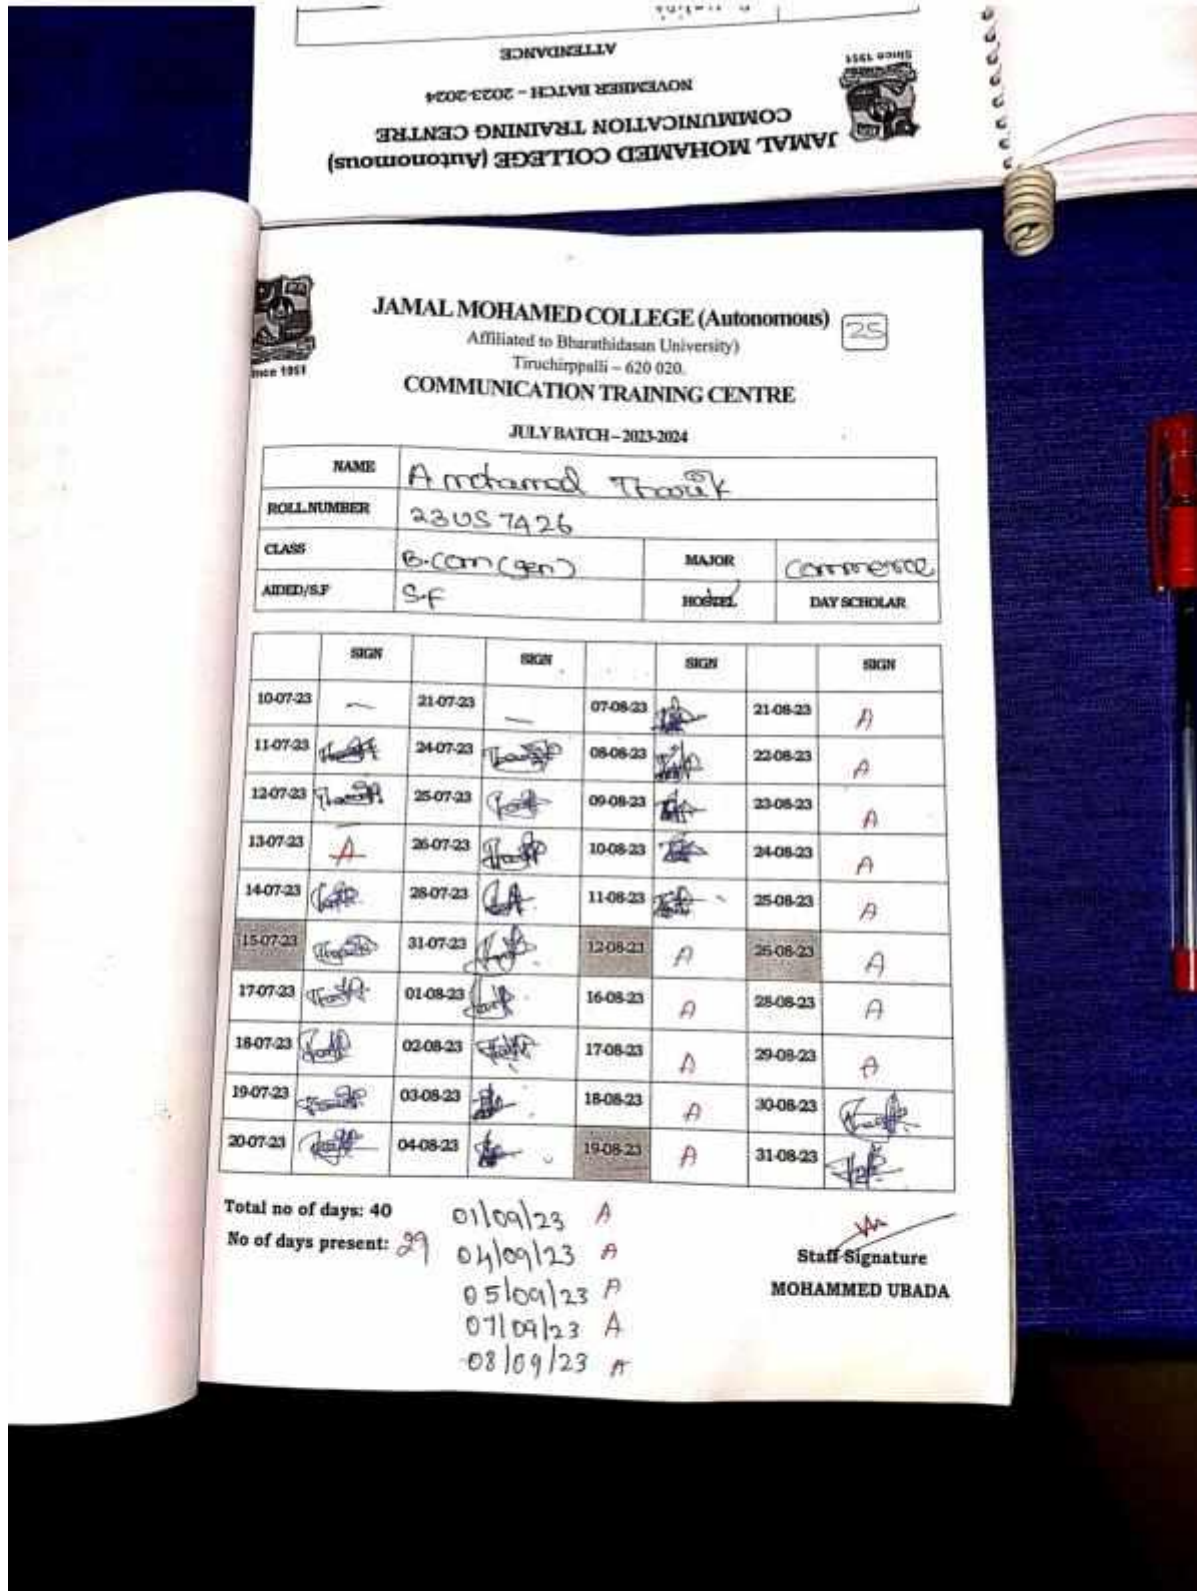 ATTENDANCE
NOVEMBER BATCH – 2023-2024
COMMUNICATION TRAINING CENTRE
JAMAL MOHAMED COLLEGE (Autonomous)
Since 1951
JAMAL MOHAMED COLLEGE (Autonomous) 25
Affiliated to Bharathidasan University)
Tiruchirppalli – 620 020.
nce 1951
COMMUNICATION TRAINING CENTRE
JULY BATCH – 2023-2024
NAME A mohamed Thoufik
ROLL NUMBER 23US7A26
CLASS B.com (gen) MAJOR Commerce
AIDED/S.F S.F HOSTEL DAY SCHOLAR
SIGN SIGN SIGN SIGN
10-07-23 – 21-07-23 – 07-08-23 21-08-23 A
11-07-23 24-07-23 08-08-23 22-08-23 A
12-07-23 25-07-23 09-08-23 23-08-23 A
13-07-23 A 26-07-23 10-08-23 24-08-23 A
14-07-23 28-07-23 11-08-23 25-08-23 A
15-07-23 31-07-23 12-08-23 A 26-08-23 A
17-07-23 01-08-23 16-08-23 A 28-08-23 A
18-07-23 02-08-23 17-08-23 A 29-08-23 A
19-07-23 03-08-23 18-08-23 A 30-08-23
20-07-23 04-08-23 19-08-23 A 31-08-23
Total no of days: 40
No of days present: 29
01/09/23 A
04/09/23 A
05/09/23 A
07/09/23 A
08/09/23 A
Staff Signature
MOHAMMED UBADA